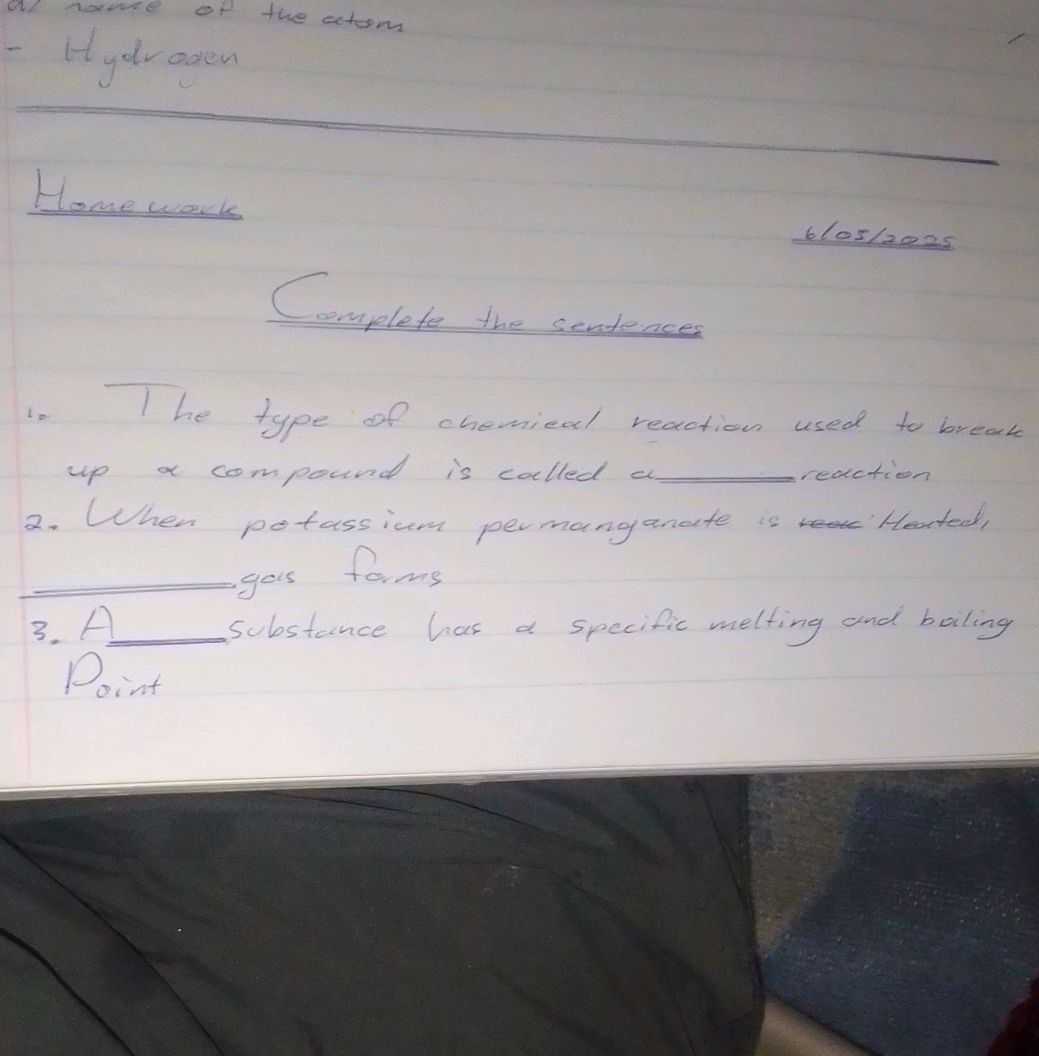 a) name of the atom
- Hydrogen
Homework
6/05/2025
Complete the sentences
1. The type of chemical reaction used to break
up a compound is called a ______ reaction
2. When potassium permanganate is Heated,
______ gas forms
3. A ______ substance has a specific melting and boiling
Point